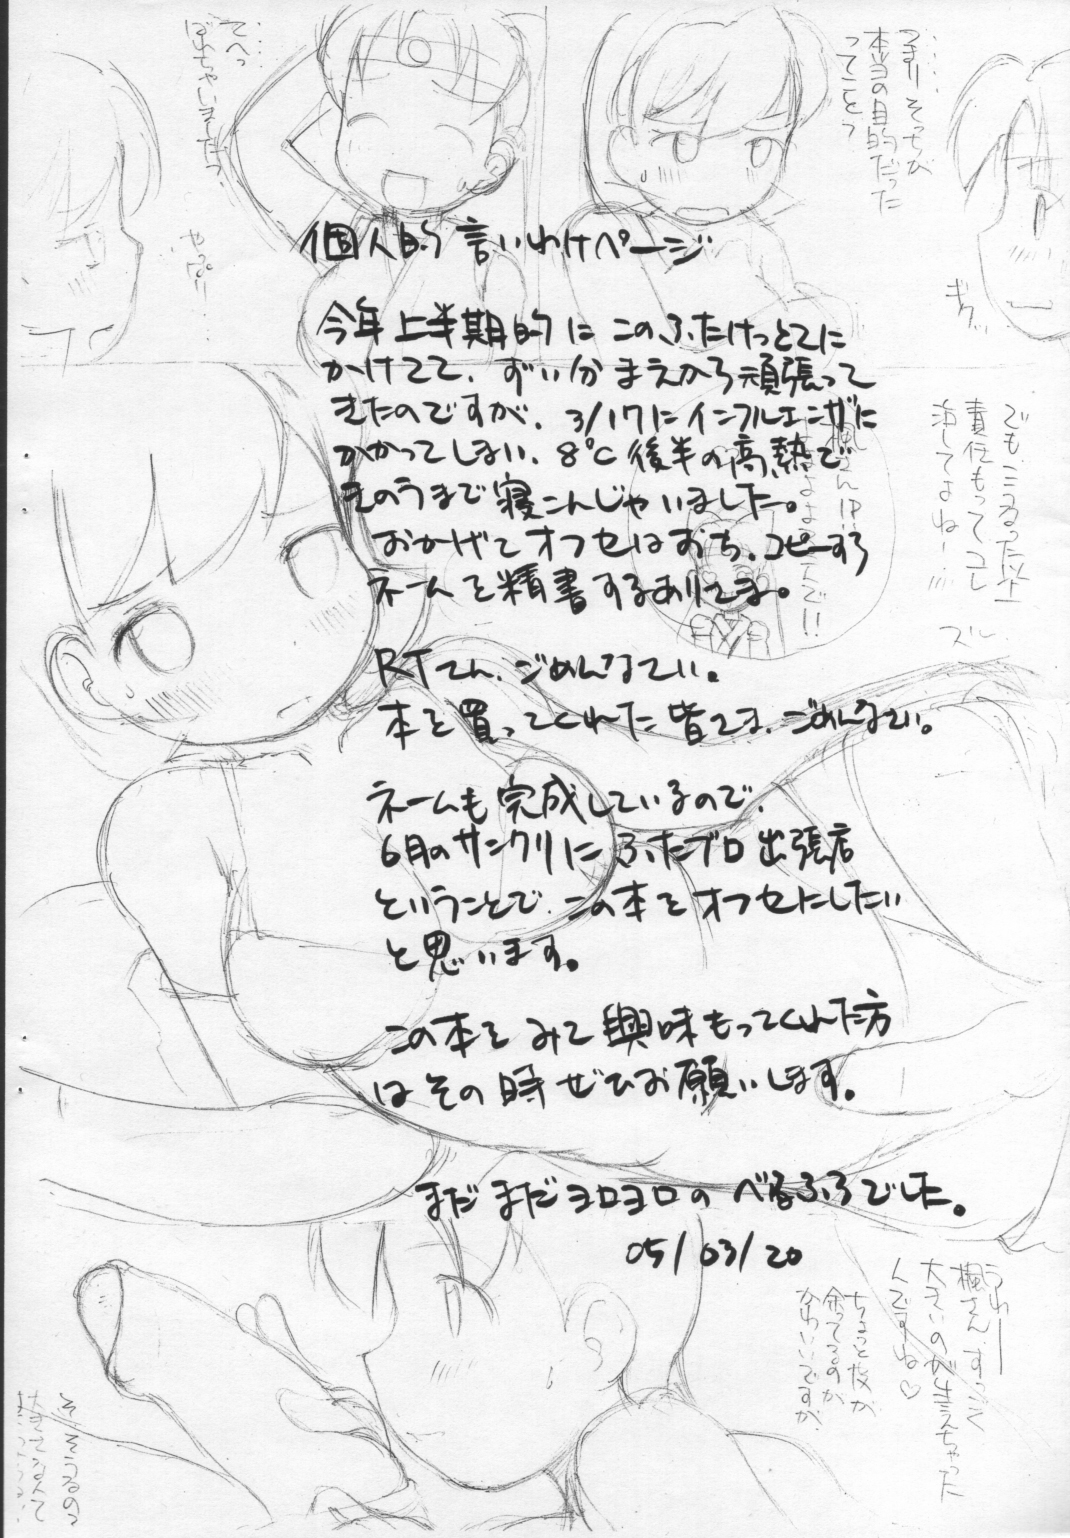 個人的言いわけページ
今年上半期的にこのふたけっとてに
かけてて、ずい分まえから頑張って
きたのですが、3/17にインフルエンザに
かかってしまい、8℃後半の高熱で
きのうまで寝こんじゃいました。
おかげでオフセはおち、コピーすら
ネームを精書するありさま。
RTさん、ごめんなさい。
本を買ってくれた皆さま、ごめんなさい。
ネームも完成しているので、
6月のサンクリにふたブロ出張店
ということで、この本をオフセにしたい
と思います。
この本をみて興味もってくれた方
はその時ぜひお願いします。
まだまだヨロヨロのべるふろでした。
05/03/20
つまりそっちが
本当の目的だった
ってこと?
てへっ
ギク…
責任もってコレ
ズル
うわー
楓さん、すっごく
大きいのが生えちゃった
んですね♡
ちょっと皮が
余ってるのが
かわいいですが